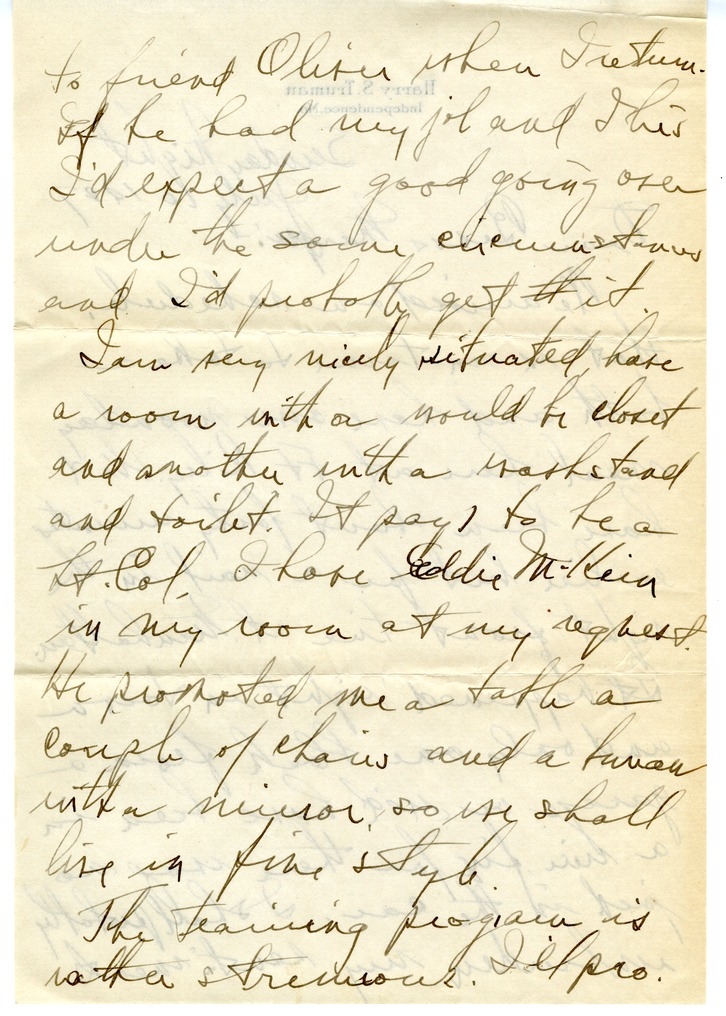 to friend Oliver when I return.
If he had my job and I his
I'd expect a good going over
under the same circumstances
and I'd probably get it.
I am very nicely situated, have
a room with a would be closet
and another with a washstand
and toilet. It pays to be a
Lt. Col. I have Eddie McKim
in my room at my request.
He promoted me a table a
couple of chairs and a bureau
with a mirror, so we shall
live in fine style.
The training program is
rather strenuous. I'll pro.